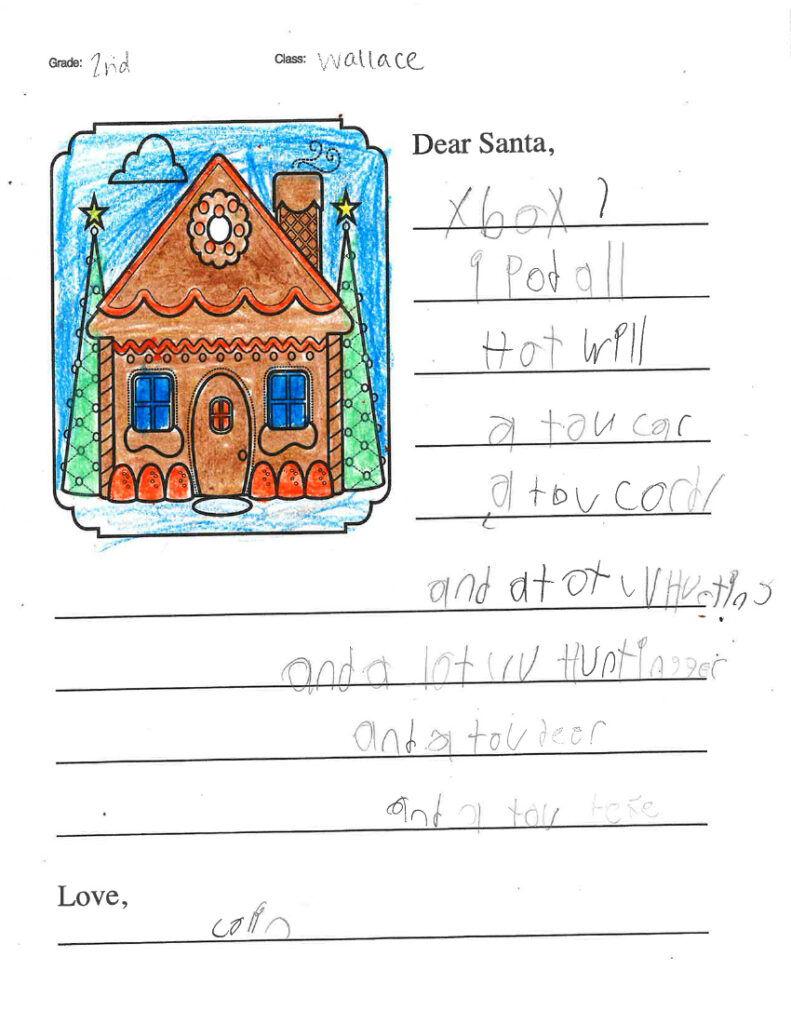 Grade: 2nd
Class: Wallace
Dear Santa,
Xbox
i Pod all
Hot Will
a tou car
a tou
and a
and a lot uv Hunting
and a tou deer
and a tou
Love,
colin